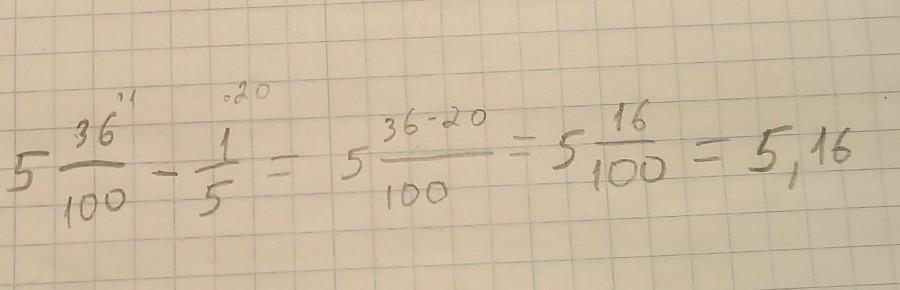 5 36·1/100 - 1·20/5 = 5 36-20/100 = 5 16/100 = 5,16